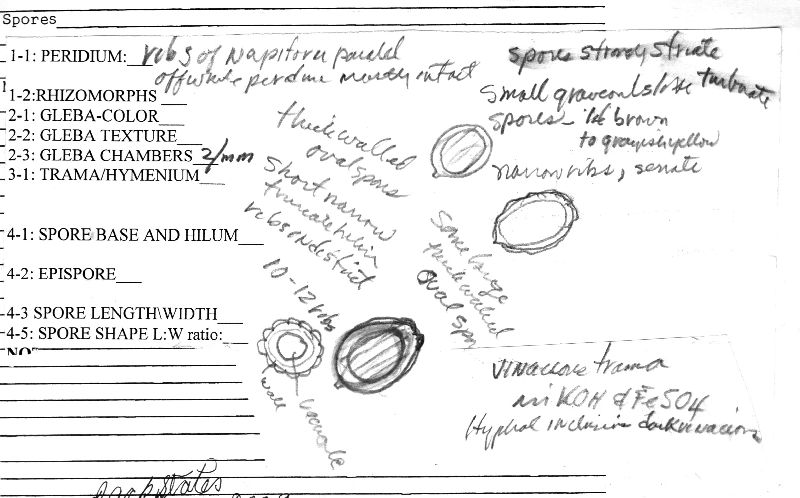 Spores
1-1: PERIDIUM: ribs of Napiform parallel
offwhite perdine mostly intact
1-2:RHIZOMORPHS
2-1: GLEBA-COLOR
2-2: GLEBA TEXTURE
2-3: GLEBA CHAMBERS 2/mm
3-1: TRAMA/HYMENIUM
4-1: SPORE BASE AND HILUM
4-2: EPISPORE
4-3 SPORE LENGTH\WIDTH
4-5: SPORE SHAPE L:W ratio:
spores strongly striate
small
turbinate
spores - brown
to grayish yellow
narrow ribs, serrate
thick walled
oval spores
short narrow
truncate hilum
ribs indistinct
10-12 ribs
Some large
thick walled
oval spor
wall
vacuole
Vinaceous trama
in KOH & FeSO4
Hyphal inclusions dark vinaceous